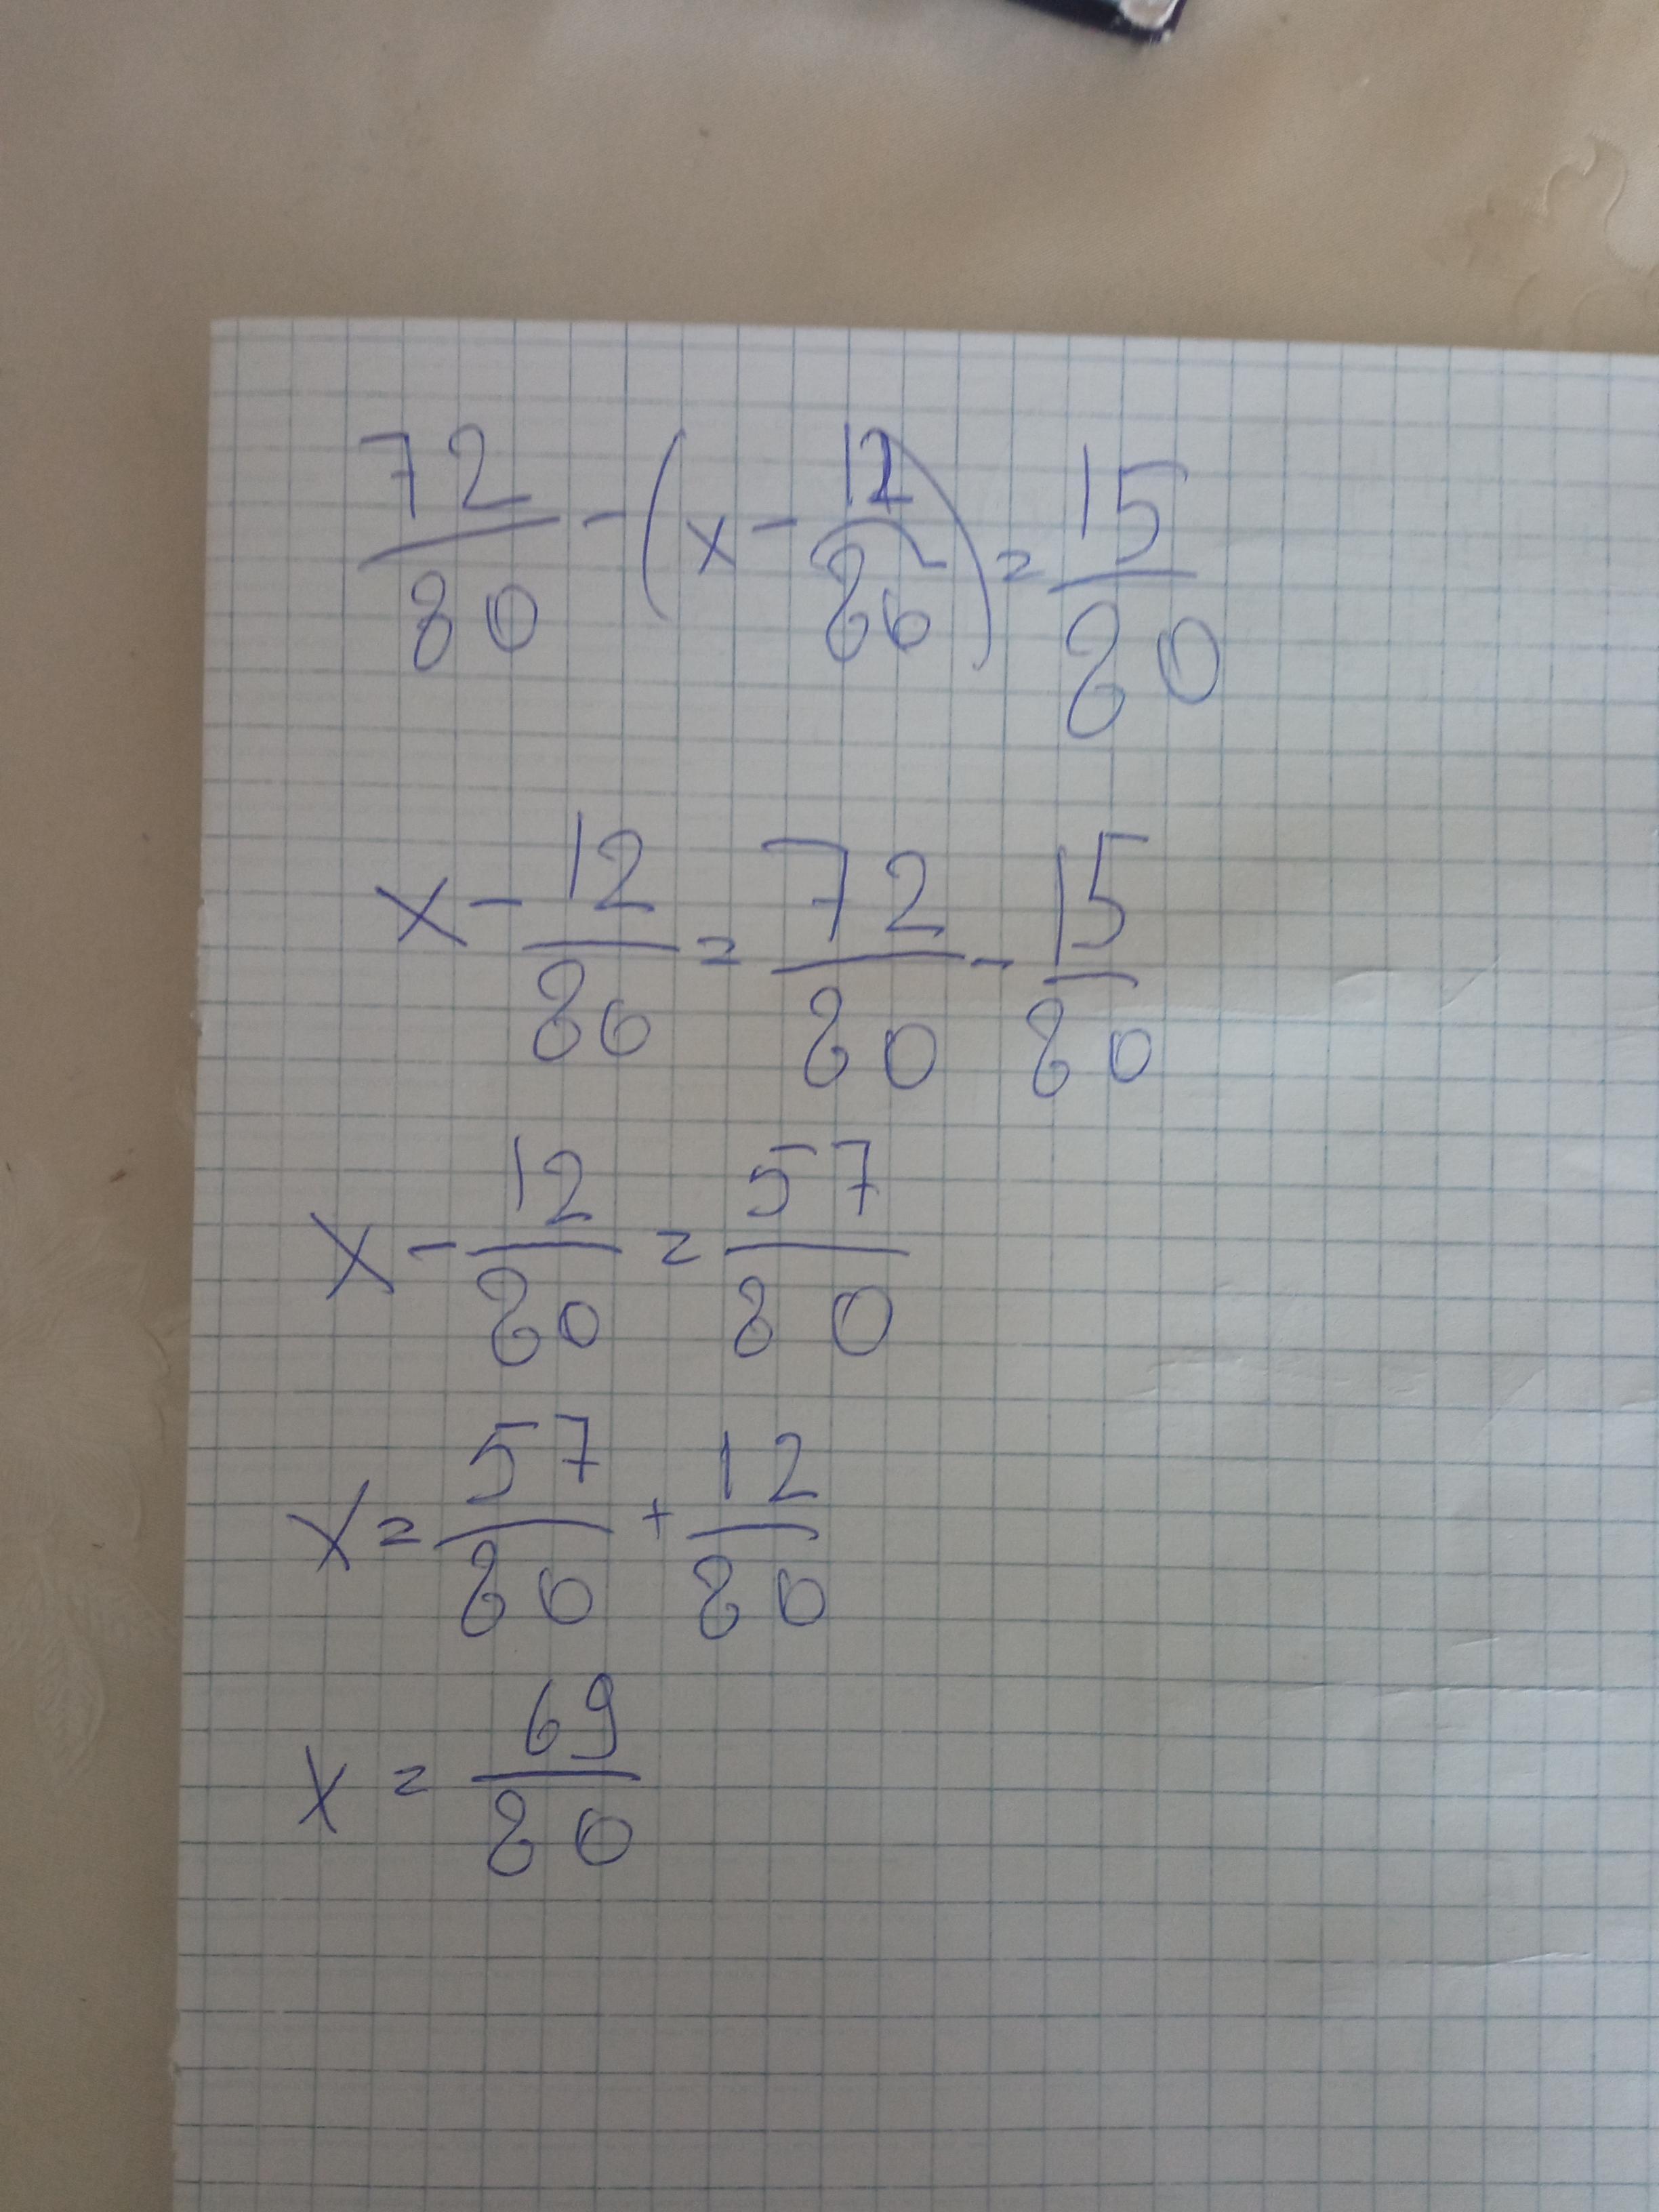 72/80 - (x - 12/80) = 15/80
x - 12/80 = 72/80 - 15/80
x - 12/80 = 57/80
x = 57/80 + 12/80
x = 69/80